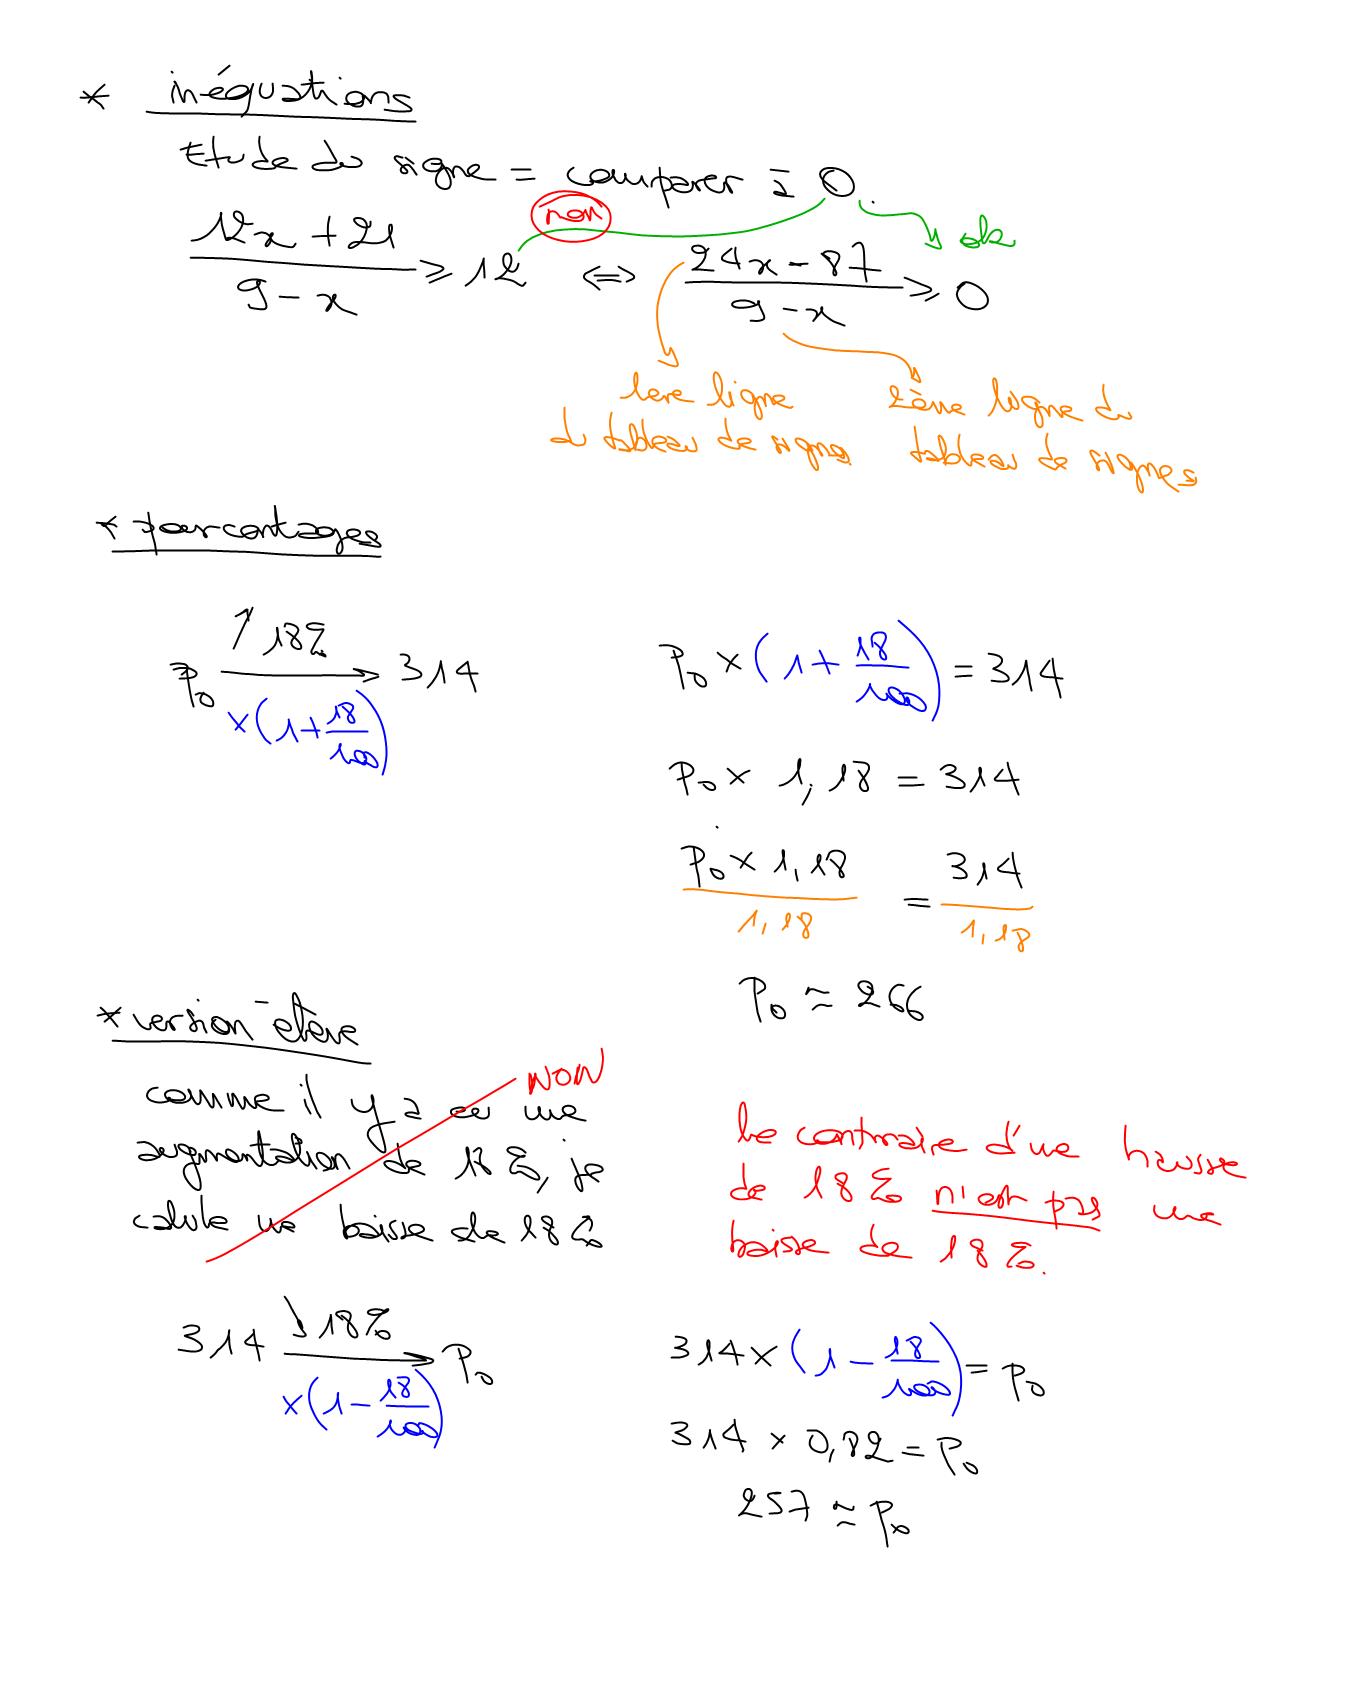 * inéquations
Etude du signe = comparer à 0.
non
ok
(12x + 21)/(9 - x) ⩾ 12 ⇔ (24x - 87)/(9 - x) ⩾ 0
1ere ligne
du tableau de signe
2ème ligne du
tableau de signes
* pourcentages
P₀ ↑ 18% → 314
×(1 + 18/100)
P₀ × (1 + 18/100) = 314
P₀ × 1,18 = 314
(P₀ × 1,18)/1,18 = 314/1,18
P₀ ≈ 266
* version élève
NON
comme il y a eu une
augmentation de 18%, je
calule une baisse de 18%
Le contraire d'une hausse
de 18% n'est pas une
baisse de 18%.
314 ↓ 18% → P₀
×(1 - 18/100)
314 × (1 - 18/100) = P₀
314 × 0,82 = P₀
257 ≈ P₀